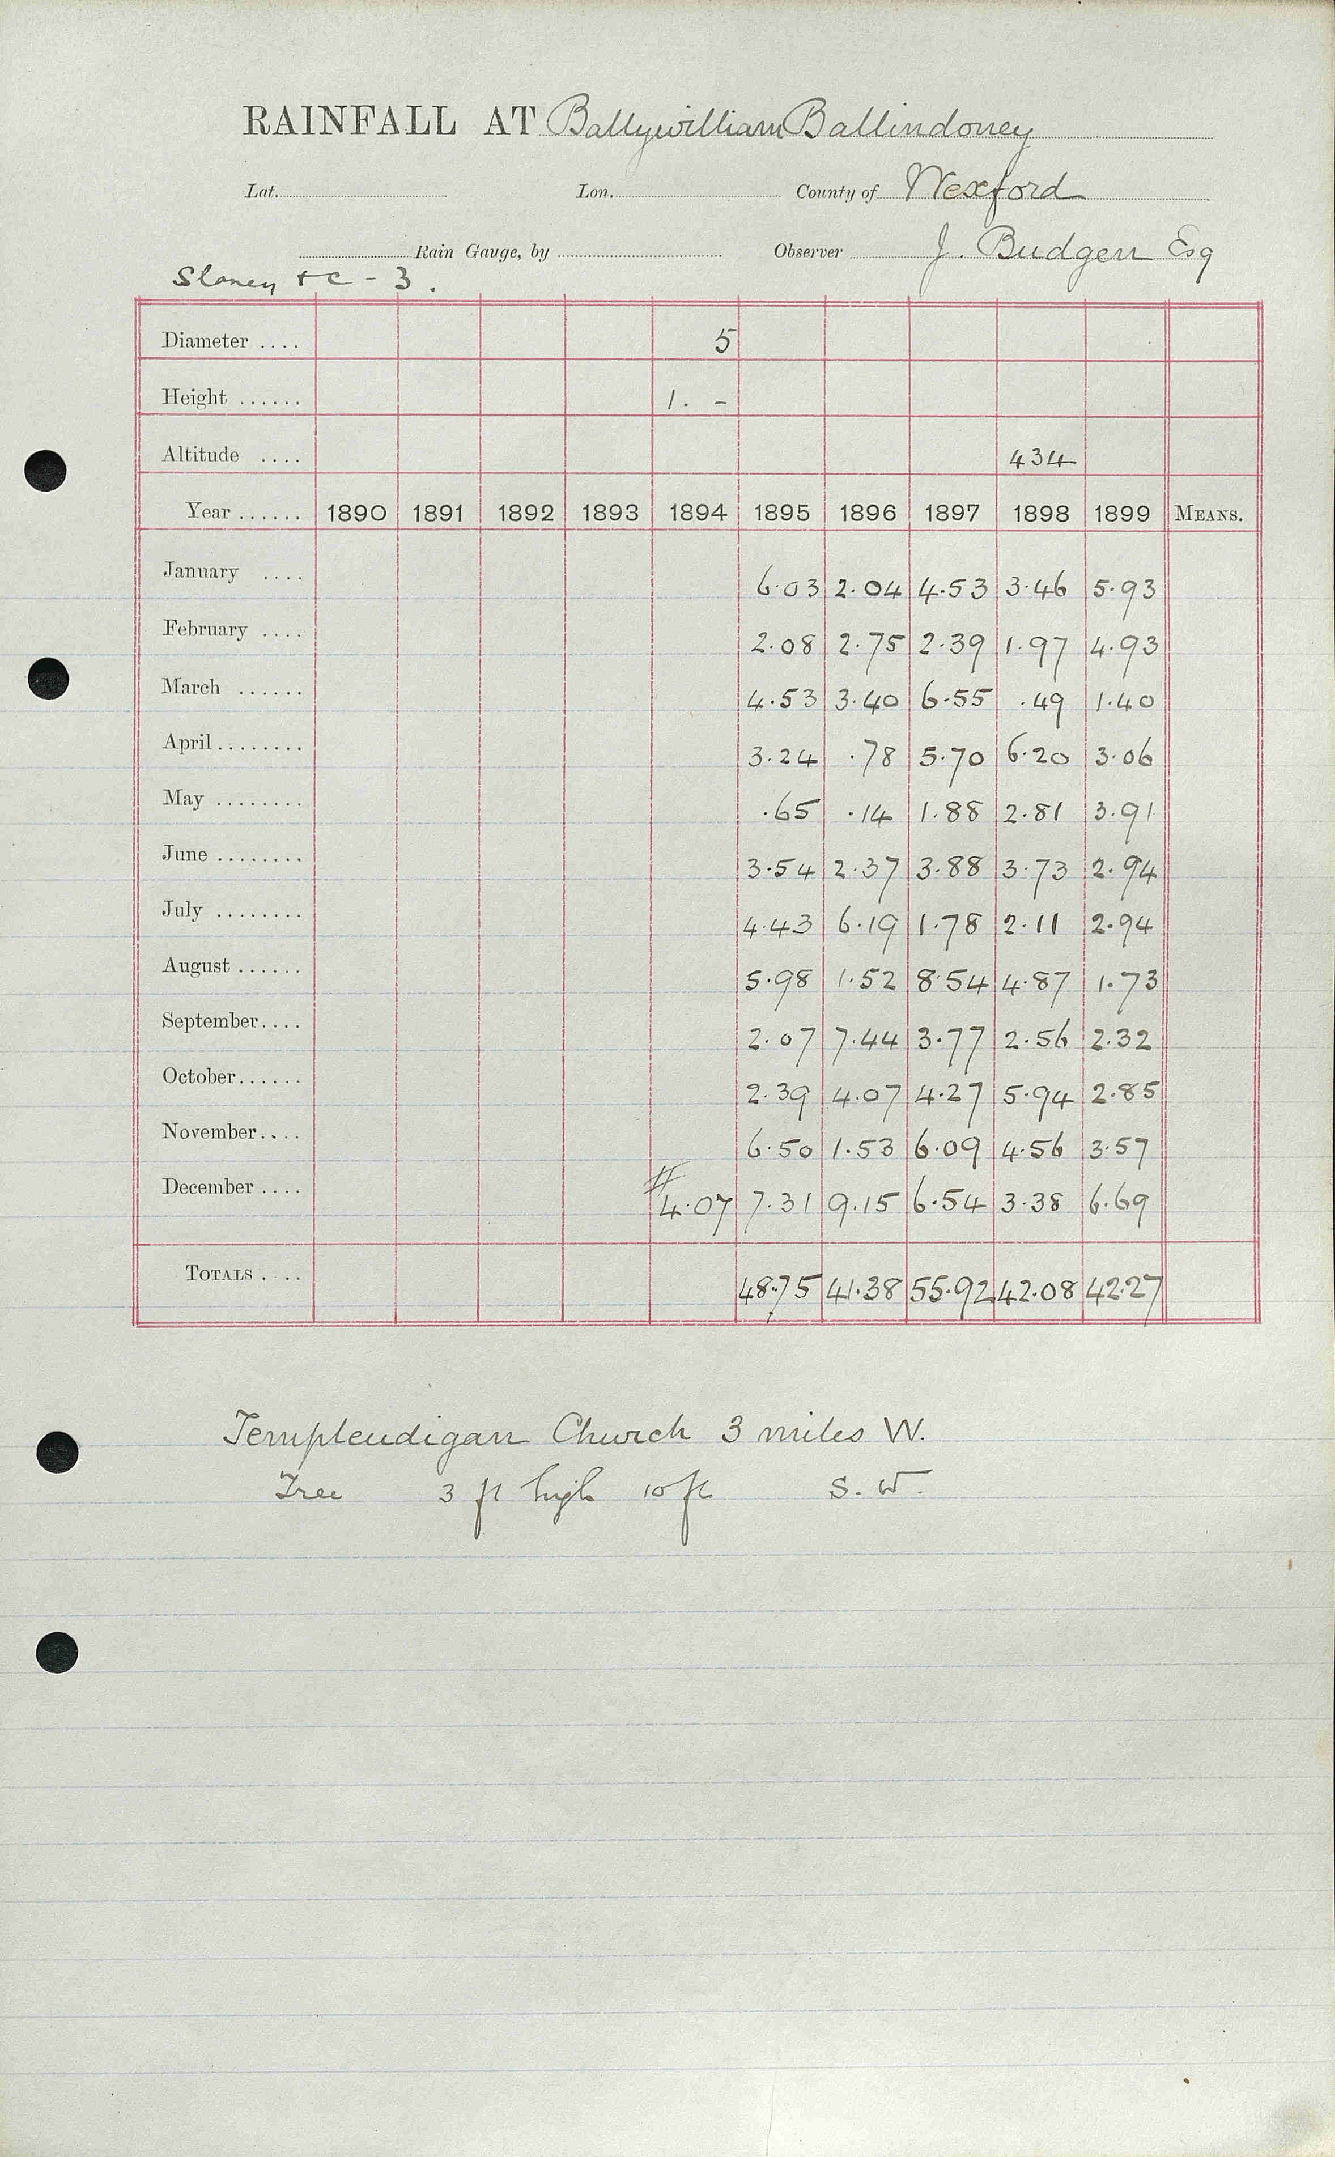 RAINFALL AT Ballywilliam Ballindoney
Lat. Lon. County of Wexford
Rain Gauge, by Observer J. Budgen Esq
Slaney & C - 3.
Diameter .... 5
Height ...... 1. -
Altitude .... 434
Year ...... 1890 1891 1892 1893 1894 1895 1896 1897 1898 1899 MEANS.
January .... 6.03 2.04 4.53 3.46 5.93
February .... 2.08 2.75 2.39 1.97 4.93
March ...... 4.53 3.40 6.55 .49 1.40
April ........ 3.24 .78 5.70 6.20 3.06
May ........ .65 .14 1.88 2.81 3.91
June ........ 3.54 2.37 3.88 3.73 2.94
July ........ 4.43 6.19 1.78 2.11 2.94
August ...... 5.98 1.52 8.54 4.87 1.73
September.... 2.07 7.44 3.77 2.56 2.32
October...... 2.39 4.07 4.27 5.94 2.85
November.... 6.50 1.53 6.09 4.56 3.57
December .... # 4.07 7.31 9.15 6.54 3.38 6.69
TOTALS .... 48.75 41.38 55.92 42.08 42.27
Templeudigan Church 3 miles W.
Tree 3 ft high 10 ft S. W.